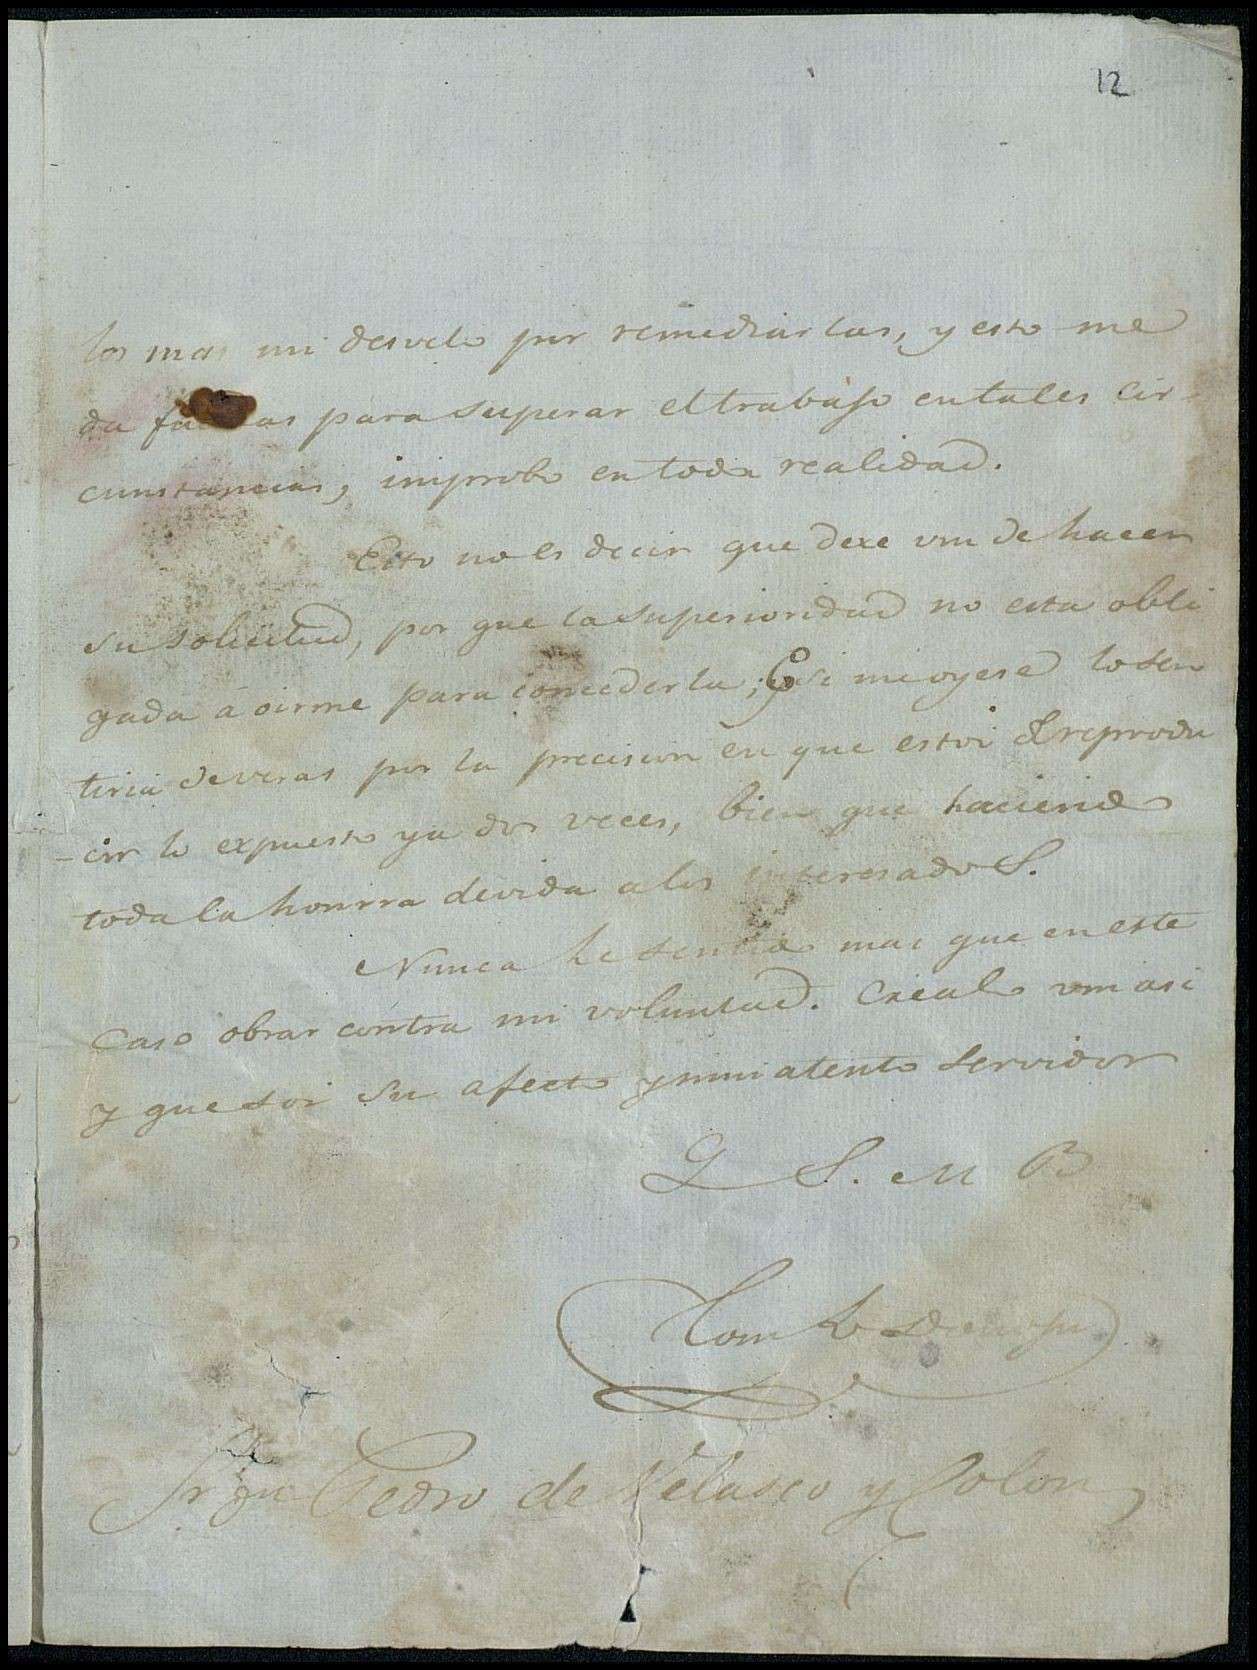 12
los mas mi desvelo por remediarlas, y esto me
da para superar el trabajo en tales cir-
cunstancias, improbo en toda realidad.
Esto no es decir que dexe vm de hacer
su solicitud, por que la superioridad no esta obli
gada á oirme para concederla; si me oyese lo sen
tiria deveras por la precision en que estoi de reprodu
-cir lo expuesto ya dos veces, bien que haciendo
toda la honrra devida a los interesados.
Nunca he sentido mas que en este
Caso obrar contra mi voluntad. Crealo vm asi
y que soi su afecto y mui atento servidor
Q S. M B
Sr Dn Pedro de Velasco y Colon